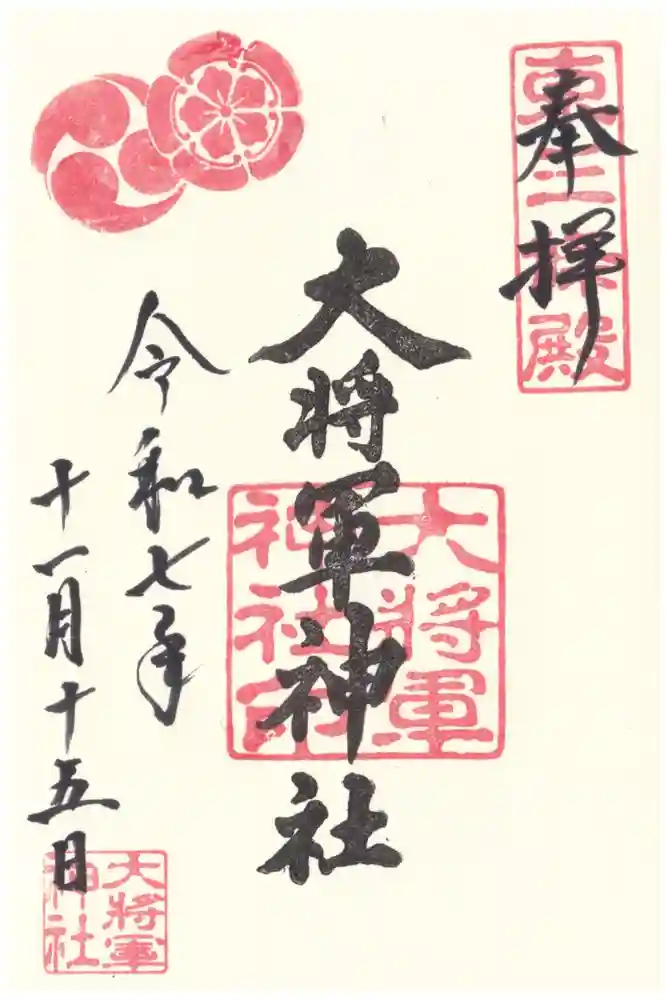 奉拝
東三条殿
大将軍神社
大將軍
神社印
令和七年
十一月十五日
大將軍
神社